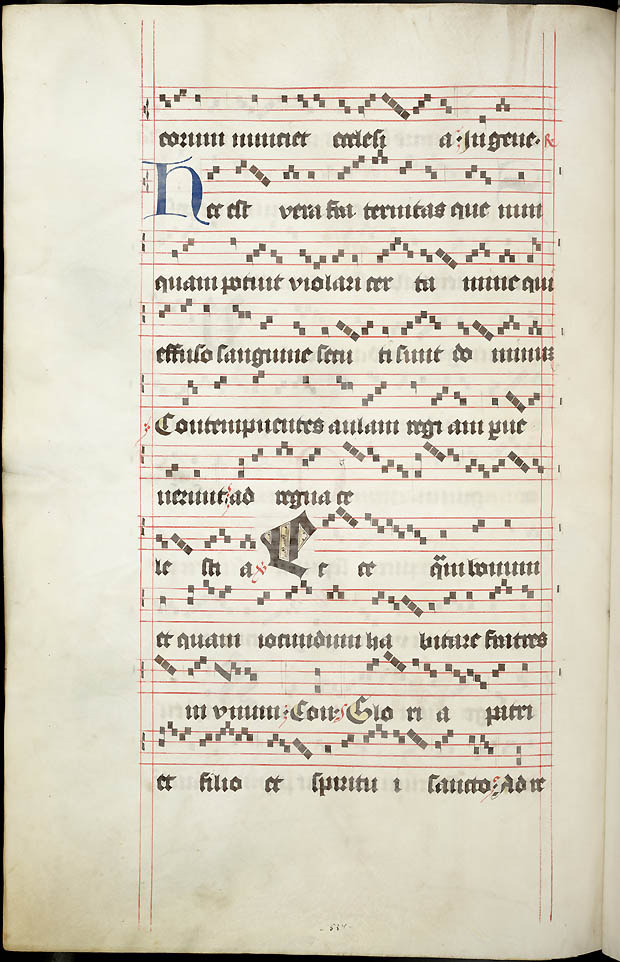 eorum nunciet ecclesi a. In gene. ꝶ
Hec est vera fra ternitas que nun
quam potuit violari cer ta mine qui
effuso sanguine secu ti sunt do minuꝫ
Contempnentes aulam regi am ꝑue
nerunt ad regna ce
le sti a ℣. E c ce quā bonum
et quam iocundum ha bitare fratres
in vnum. Con. Glo ri a patri
et filio et spiritu i sancto. Ad re